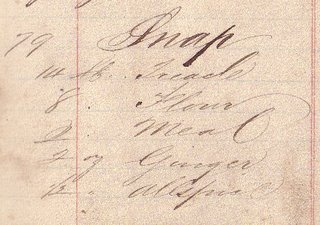 79 Snap
14 lb. Treacle
8 . Flour
2 . Meal
oz Ginger
. Allspice